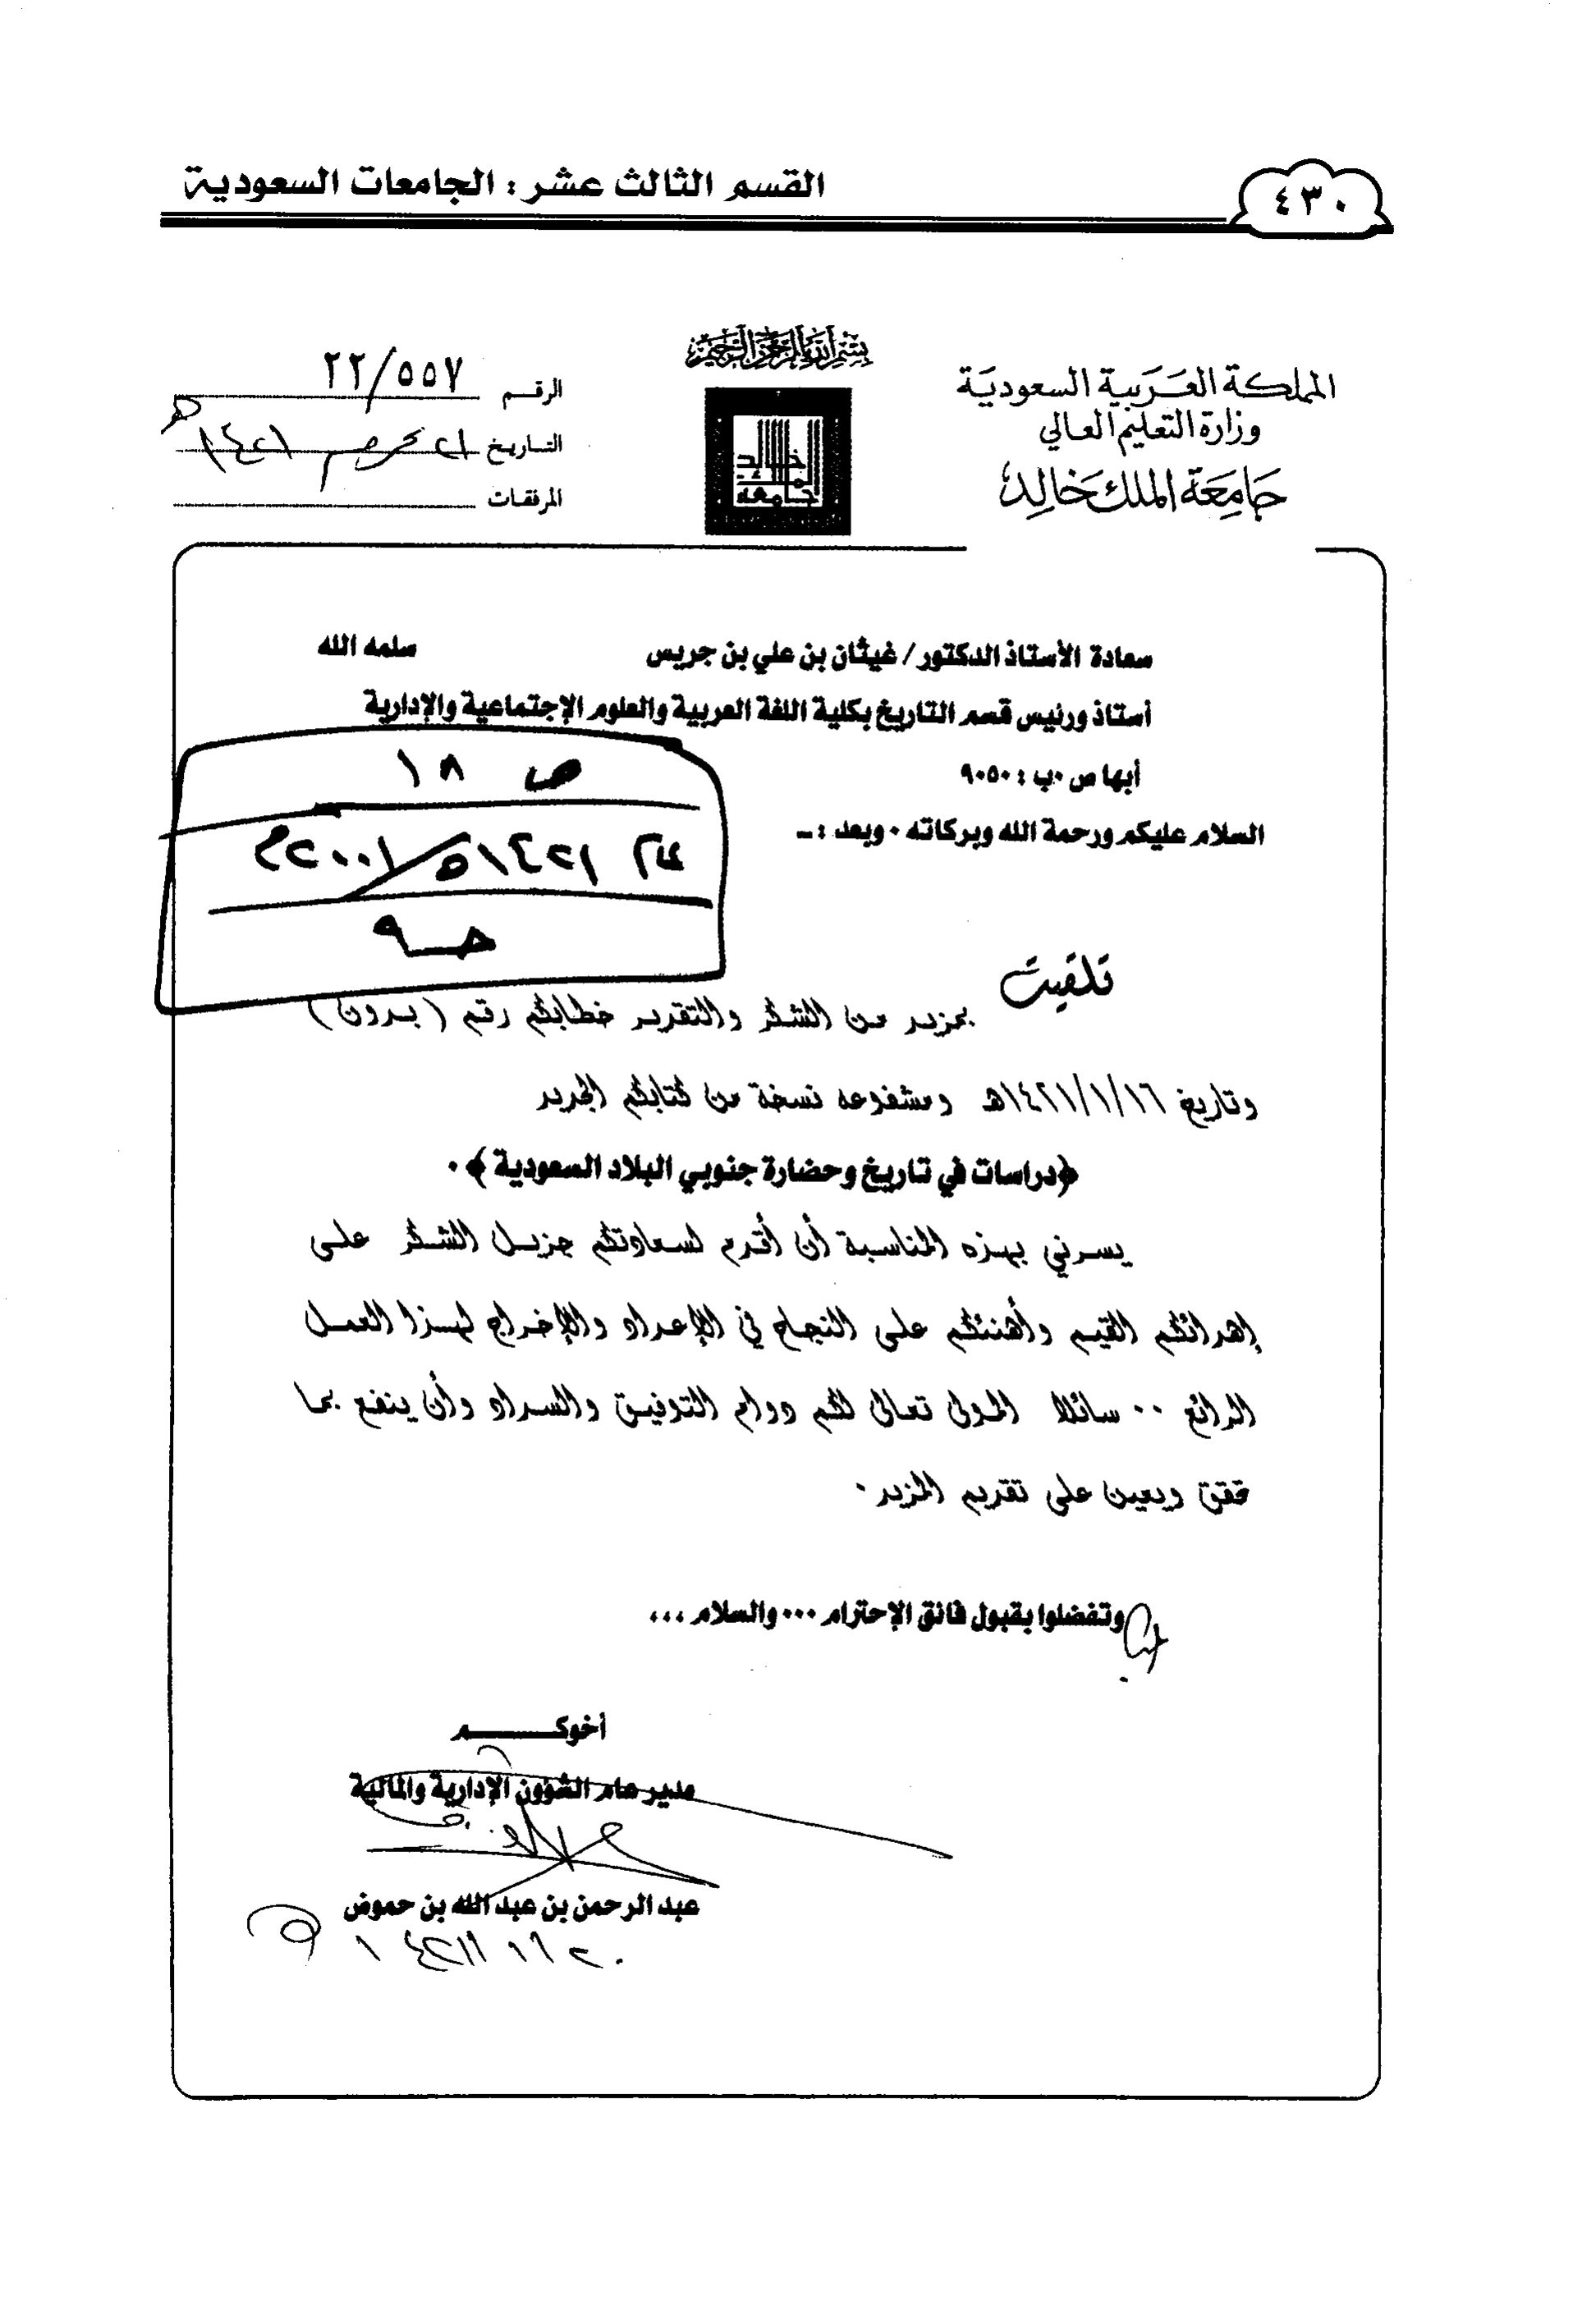 ٤٣٠
القسم الثالث عشر : الجامعات السعودية
بسم الله الرحمن الرحيم
المملكة العربية السعودية
وزارة التعليم العالي
جامعة الملك خالد
جامعة الملك خالد
الرقم ٢٢/٥٥٧
التاريخ ٢١ محرم ١٤٢١هـ
المرفقات
سعادة الأستاذ الدكتور/ غيثان بن علي بن جريس سلمه الله
أستاذ ورئيس قسم التاريخ بكلية اللغة العربية والعلوم الإجتماعية والإدارية
أبها ص ٠ب : ٩٠٥٠
السلام عليكم ورحمة الله وبركاته ٠ وبعد : ــ
ص ١٨
١٤٢١هـ/٢٠٠١م
حـ ٩
تلقيت بمزيد من الشكر والتقدير خطابكم رقم ( بدون )
وتاريخ ١٤٢١/١/١٦هـ ومشفوعه نسخة من كتابكم الجديد
﴿دراسات في تاريخ وحضارة جنوبي البلاد السعودية ﴾ ٠
يسرني بهذه المناسبة أن أقدم لسعادتكم جزيل الشكر على
إهدائكم القيم وأهنئكم على النجاح في الإعداد والإخراج لهذا العمل
الرائع ٠٠ سائلا المولى تعالى لكم دوام التوفيق والسداد وأن ينفع بما
تحقق ويعين على تقديم المزيد ٠
وتفضلوا بقبول فائق الإحترام ٠٠٠ والسلام ،،،
أخوكـــــم
مدير عام الشؤون الإدارية والمالية
عبد الرحمن بن عبد الله بن حموض